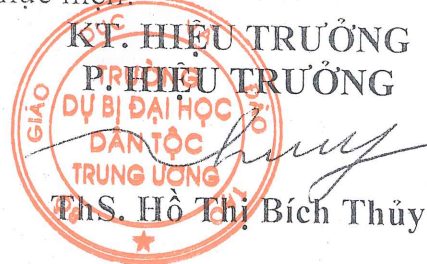 KT. HIỆU TRƯỞNG
P. HIỆU TRƯỞNG
GIÁO DỤC VÀ ĐÀO
TRƯỜNG
DỰ BỊ ĐẠI HỌC
DÂN TỘC
TRUNG ƯƠNG
ThS. Hồ Thị Bích Thủy